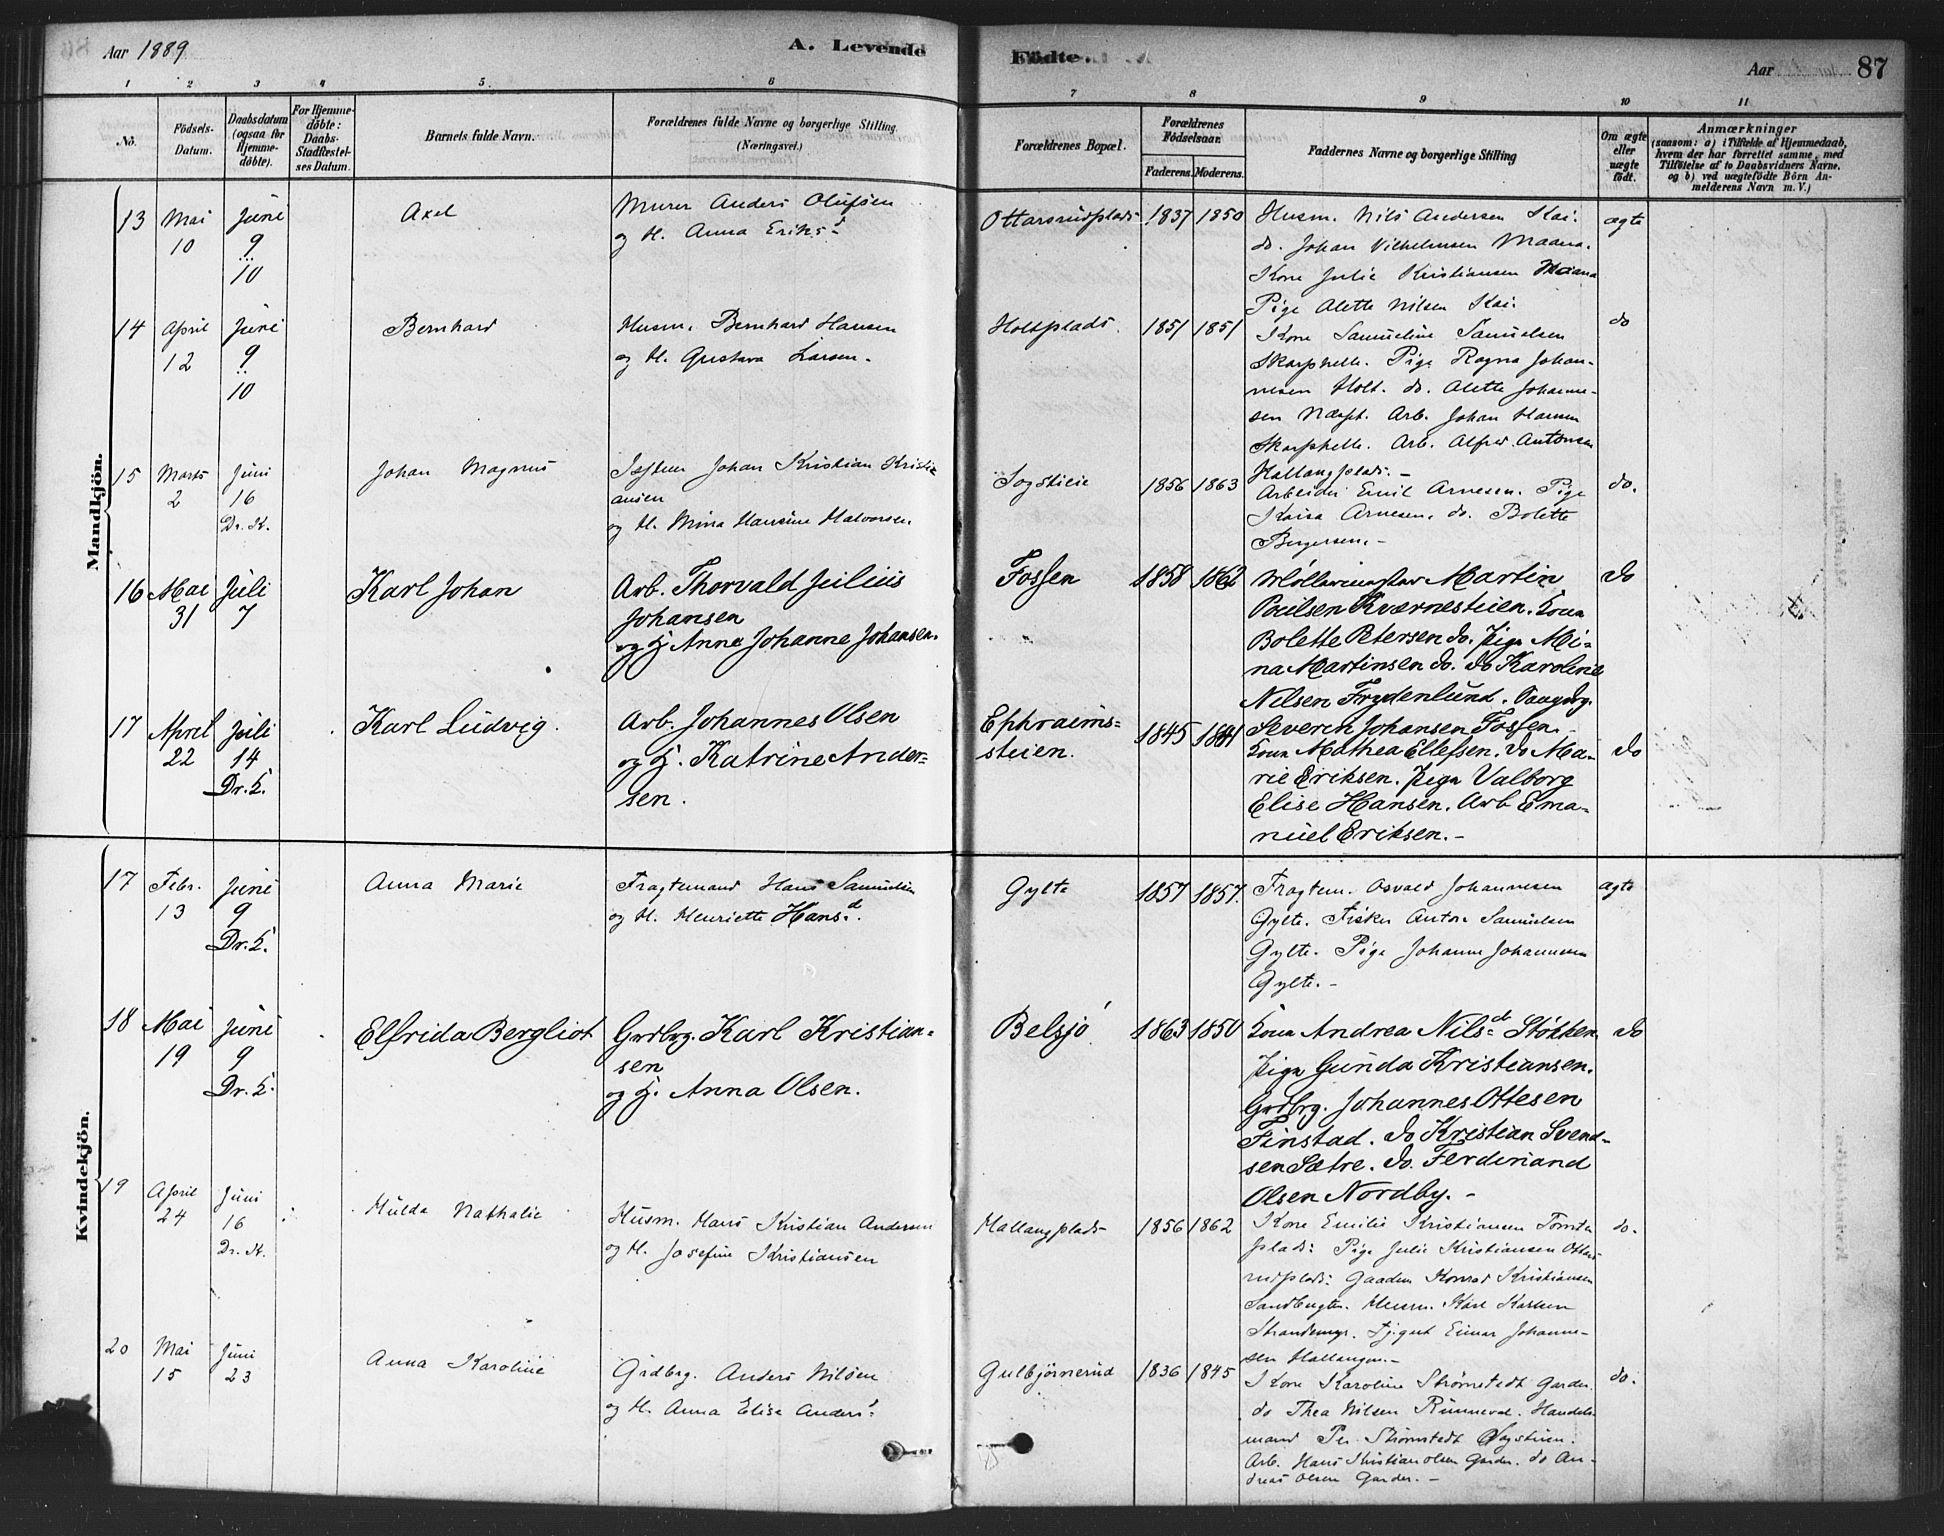 Aar 1889
A. Levende
Födte.
Aar
87
1 2 3 4 5 6
7 8 9 10 11
No.
Födsels-
Datum.
Daabsdatum
(ogsaa for
Hjemme-
döbte).
For Hjemme-
döbte:
Daabs-
Stadfæstel-
ses Datum.
Barnets fulde Navn.
Forældrenes fulde Navne og borgerlige Stilling.
(Næringsvei.)
Forældrenes Bopæl.
Forældrenes
Födselsaar.
Faderens. Moderens.
Faddernes Navne og borgerlige Stilling
Om ægte
eller
uægte
födt.
Anmærkninger
(saasom: a) i Tilfælde af Hjemmedaab,
hvem der har forrettet samme, med
Tilföielse af to Daabsvidners Navne,
og b) ved uægtefödte Börn An-
melderens Navn m. V.)
Mandkjön.
13
Mai
10
Juni
9
10
Axel
Murer Anders Olufsen
og H. Anna Eriks
Ottarsrudplads
1837 1850
Husm. Nils Andersen Kai.
do. Johan Vilhelmsen Maana.
Kone Julie Kristiansen Maana
Pige Alette Nilsen Kai.
ægte
14
April
12
Juni
9
10
Bernhard
Husm. Bernhard Hansen
og H. Gustava Larsen.
Holtplads.
1851 1851
Kone Samueline Samuelsen
Skarphelle. Pige Ragna Johan-
nesen Holt. do. Alette Johanne-
sen Næspt. Arb. Johan Hansen
Skarphelle. Arb. Alfred Antonsen
Hallangplads. -
do
15
Marts
2
Juni
16
Dr. K.
Johan Magnus
Johan Kristian Kristi
ansen
og H. Mina Hansine Halvorsen
Sogstiele
1856 1863
Arbeider Emil Arnesen. Pige
Kaisa Arnesen. do. Bolette
Bergersen. -
do.
16
Mai
31
Juli
7
Karl Johan
Arb. Thorvald Julius
Johansen
og H. Anna Johanne Johansen.
Fossen
1858 1862
Møllermester Martin
Poulsen Kværnestuen. Kone
Bolette Petersen do. Pige Mi-
na Martinsen do. do Karoline
Nilsen Frydenlund.
Severin Johansen Fossen.
do
17
April
22
Juli
14
Dr. K.
Karl Ludvig.
Arb. Johannes Olsen
og H. Katrine Ander-
sen.
Ephraims-
steien.
1845 1841
Kone Mathea Ellefsen. do Ma-
rie Eriksen. Pige Valborg
Elise Hansen. Arb Ema-
nuel Eriksen. -
do
Kvindekjön.
17
Febr.
13
Juni
9
Dr. K.
Anna Marie
Fragtemand Hans Samuelsen
og H. Henriette Hansd.
Gylte
1857 1857.
Fragtem. Osvald Johannesen
Gylte. Fisker Anton Samuelsen
Gylte. Pige Johanne Johannesen
Gylte. -
ægte
18
Mai
19
Juni
9
Dr. K.
Elfrida Bergliot
Grdbrg. Karl Kristian-
sen
og H. Anna Olsen.
Belsjø
1863 1850
Kone Andrea Nilsd Støkken
Pige Gunda Kristiansen.
Grdbrg. Johannes Ottesen
Finstad. do Kristian Svend-
sen Sætre. do. Ferdinand
Olsen Nordby. -
do
19
April
24
Juni
16
Dr. K.
Hulda Nathalie
Husm. Hans Kristian Andersen
og H. Josefine Kristiansen
Hallangplads
1856 1862
Kone Emilie Kristiansen Tomte
plads: Pige Julie Kristiansen Ottars
rudplads: Gaardm Konrad Kristiansen
Sandbugten. Husm. Karl Karlsen
Strandengr. Einar Johanne-
sen Hallangen. -
do.
20
Mai
15
Juni
23
Anna Karoline
Grdbrg. Anders Nilsen
og H. Anna Elise Anders
Gulbjørnerud
1836 1845
Kone Karoline Strømstedt Garder.
do Thea Nilsen Runneval. Handels-
mand Per Strømstedt Sogstien.
Arb. Hans Kristian Olsen Garder. do An-
dreas Olsen Garder. -
do.